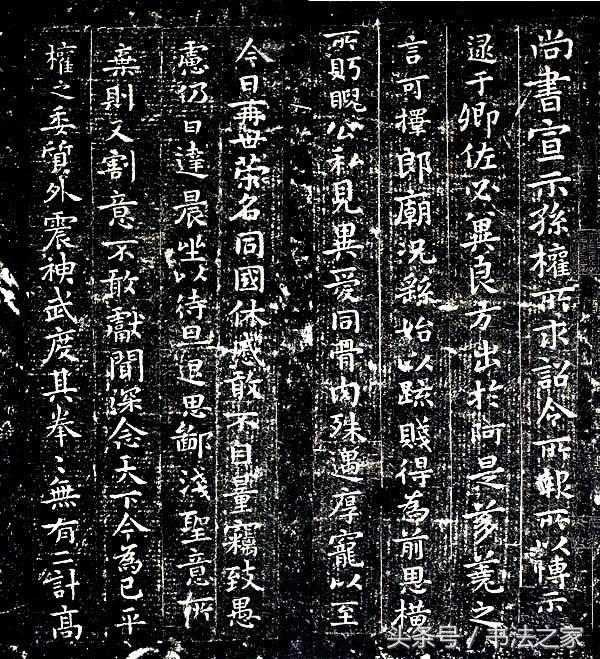 尚書宣示孫權所求詔令所報所以博示
逮于卿佐必冀良方出於阿是芻蕘之
言可擇郎廟況繇始以疏賤得為前恩橫
所眄睨公私見異愛同骨肉殊遇厚寵以至
今日再世榮名同國休慼敢不自量竊致愚
慮仍日達晨坐以待旦退思鄙淺聖意所
棄則又割意不敢獻聞深念天下今為已平
權之委質外震神武度其拳〻無有二計高
头条号 / 书法之家